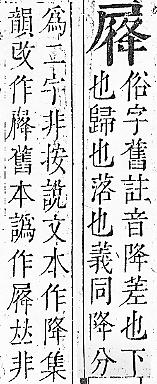 俗字舊註音降差也下
也歸也落也義同降分
爲二字非按說文本作降集
韻改作舊本譌作𠀤非